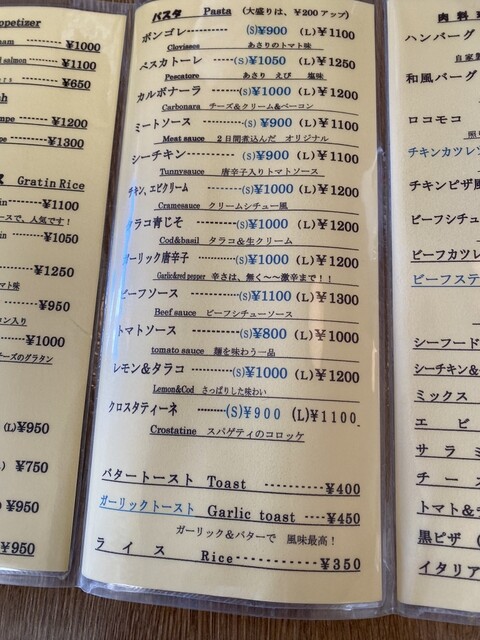 ppetizer
am ¥1000
d salmon ¥1100
¥650
h
mpe ¥1200
pe ¥1300
ス Gratin Rice
in ¥1100
ースで、人気です!
in ¥1050
¥1250
マト味
¥950
コン入り
¥1000
チーズのグラタン
(L)¥950
) ¥750
¥950
¥950
パスタ Pasta (大盛りは、¥200アップ)
ボンゴレ (S)¥900 (L)¥1100
Clovissee あさりのトマト味
ペスカトーレ (S)¥1050 (L)¥1250
Pescatore あさり えび 塩味
カルボナーラ (S)¥1000 (L)¥1200
Carbonara チーズ&クリーム&ベーコン
ミートソース (S)¥900 (L)¥1100
Meat sauce 2日間煮込んだ オリジナル
シーチキン (S)¥900 (L)¥1100
Tunnysauce 唐辛子入りトマトソース
チキン、エビクリーム (S)¥1000 (L)¥1200
Cramesauce クリームシチュー風
タラコ青じそ (S)¥1000 (L)¥1200
Cod&basil タラコ&生クリーム
ガーリック唐辛子 (S)¥1000 (L)¥1200
Garlic&red pepper 辛さは、無く~~激辛まで!!
ビーフソース (S)¥1100 (L)¥1300
Beef sauce ビーフシチューソース
トマトソース (S)¥800 (L)¥1000
tomato sauce 麺を味わう一品
レモン&タラコ (S)¥1000 (L)¥1200
Lemon&Cod さっぱりした味わい
クロスタティーネ (S)¥900 (L)¥1100
Crostatine スパゲティのコロッケ
バタートースト Toast ¥400
ガーリックトースト Garlic toast ¥450
ガーリック&バターで 風味最高!
ライス Rice ¥350
肉 料 理
ハンバーグ
自家製
和風バーグ
ロコモコ
チキンカツレツ
チキンピザ風
ビーフシチュー
ビーフカツレ
ビーフステ
シーフード
シーチキン&
ミックス
エ ビ
サ ラ ミ
チ ー ズ
トマト&チ
黒ピザ (
イタリア